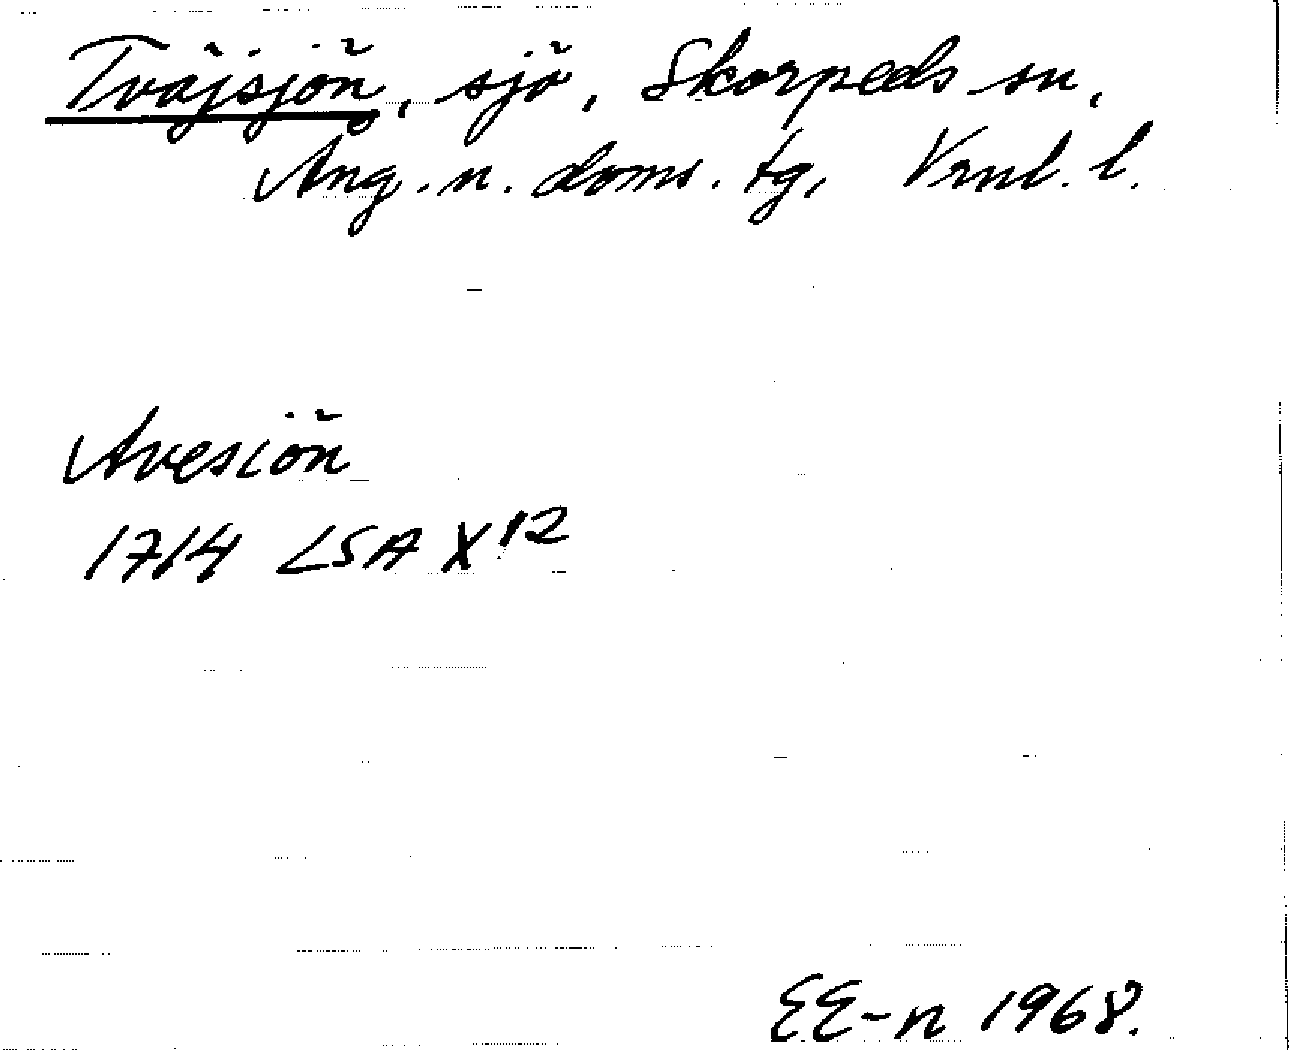 Tväjsjön, sjö, Skorpeds sn,
Ång. n. doms. tg, Vrnl. l.
Avesiön
1714 LSA X12
EE-n 1968.